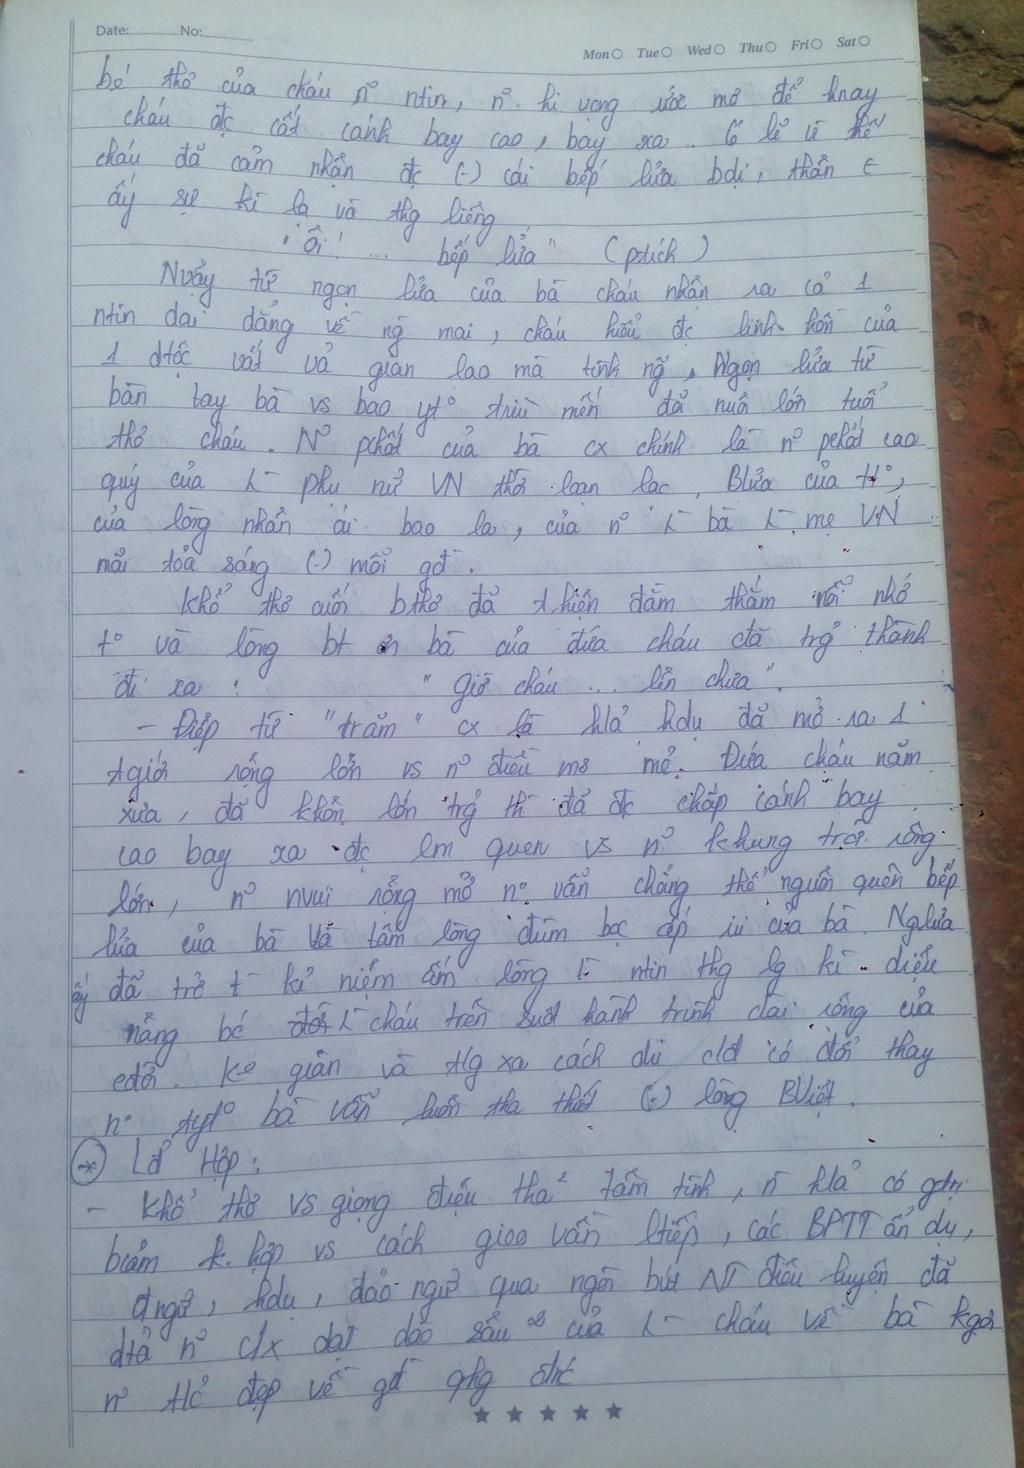 Date: No:
Mon Tue Wed Thu Fri Sat
bé thơ của cháu n° ntin, n° hi vọng ước mơ để hnay
cháu đc cất cánh bay cao, bay xa. Có lẽ vì thế
cháu đã cảm nhận đc (-) cái bếp lửa bdị, thân
ấy sự kì lạ và thg liêng
"Ôi! ... bếp lửa" (ptích)
Nvẩy từ ngọn lửa của bà cháu nhận ra cả 1
ntin dai dẳng về ng mai, cháu hiểu đc linh hồn của
1 dtộc vất vả gian lao mà tình ng. Ngọn lửa từ
bàn tay bà vs bao yt° trìu mến đã nuôi lớn tuổi
thơ cháu. N° pchất của bà cx chính là n° pchất cao
quý của phụ nữ VN thời loạn lạc. Blửa của
của lòng nhân ái bao la, của n° bà mẹ VN
mãi toả sáng (-) mỗi gđ.
Khổ thơ cuối bthơ đã thiện đằm thắm nỗi nhớ
t° và lòng bt ơn bà của đứa cháu đã trg thành
đi xa: "Giờ cháu ... lên chưa".
- Điệp từ "trăm" cx là hdụ đã mở ra 1
tgiới rộng lớn vs n° điều ms mẻ. Đứa cháu năm
xưa, đã khôn lớn trg th đã đc chắp cánh bay
cao bay xa đc lm quen vs n° khung trời rộng
lớn, n° nvui rộng mở n° vẫn chẳng thể nguôi quên bếp
lửa của bà và tấm lòng đùm bọc ấp iu của bà. Nglửa
ấy đã trở t kỉ niệm ấm lòng ntin thg lg kì diệu
nâng bé cháu trên suốt hành trình dài rộng của
cđời. K° gian và tlg xa cách dù clđ có đổi thay
n° bà vẫn luôn tha thiết (-) lòng BViệt.
(*) Lđ Hợp:
- Khổ thơ vs giọng điệu tha² tâm tình, có gtrị
bcảm k.hợp vs cách gieo vần ltiếp, các BPTT ẩn dụ,
đngữ, hdụ, đảo ngữ qua ngòi bút NT điêu luyện đã
dtả n° c/x dạt dào sâu của cháu về bà kgợi
n° đẹp về gđ qhg